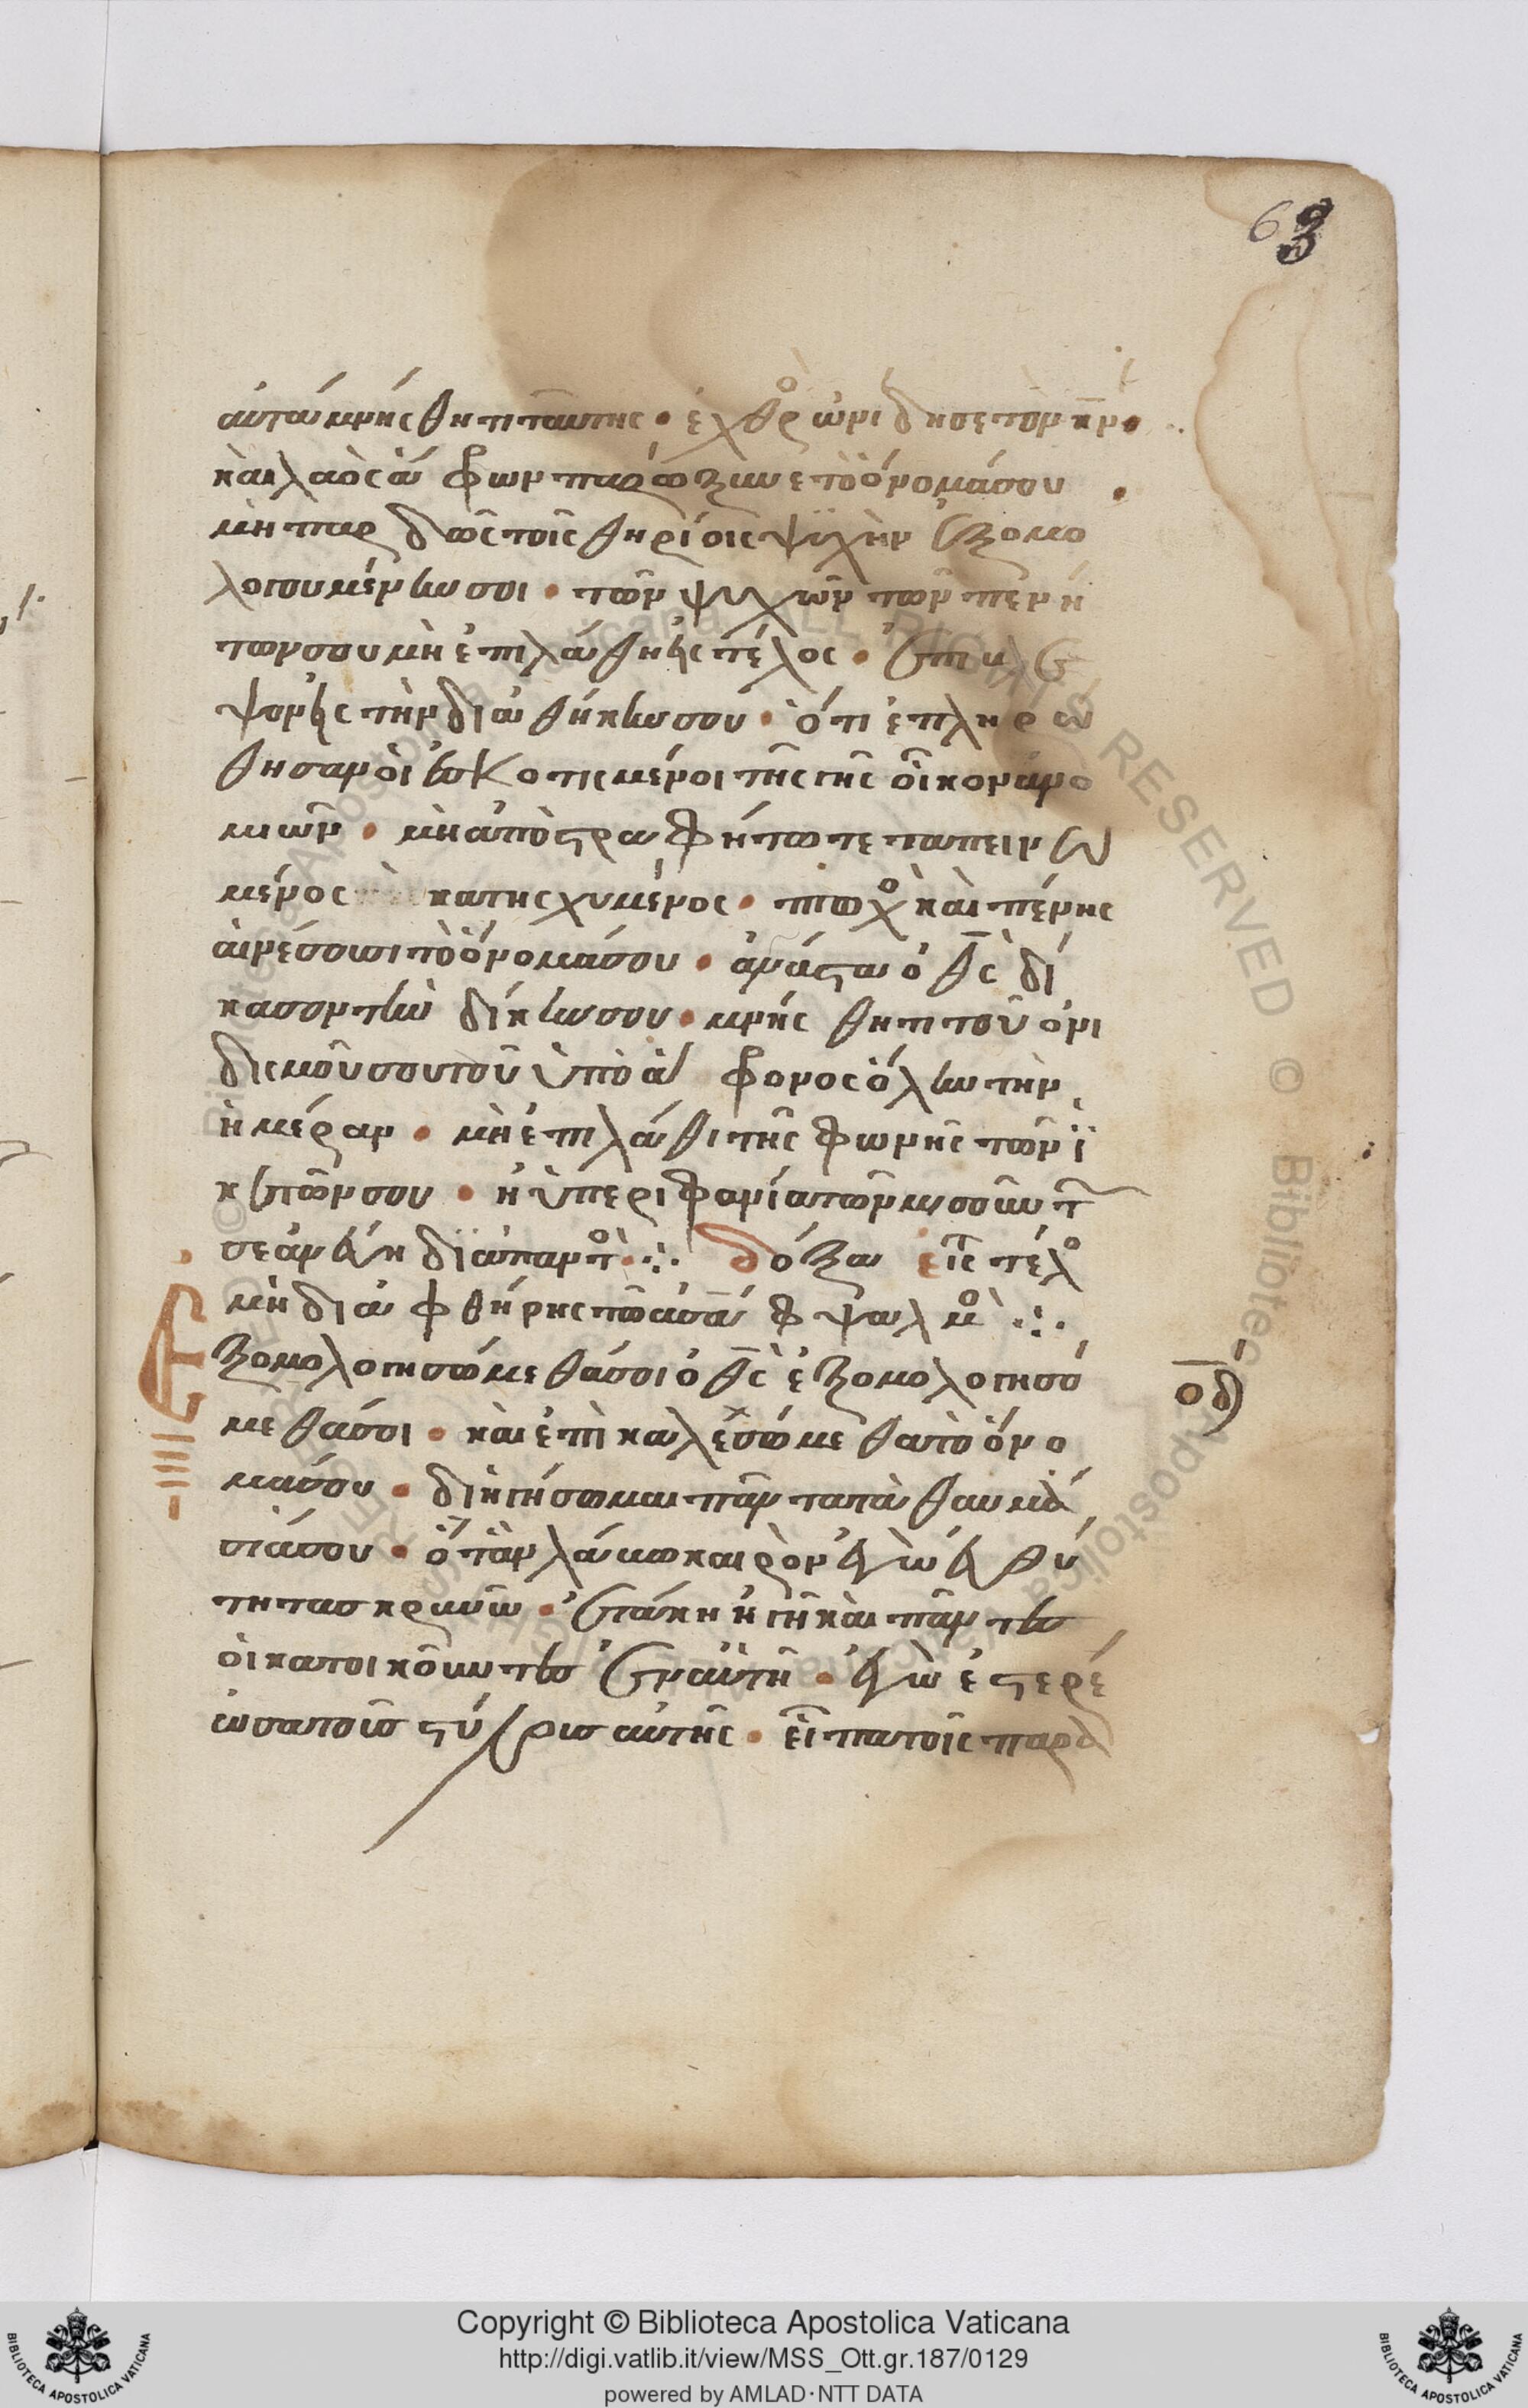 63
αὐτά μνήσθητι ταύτης · ἐχθρ ὠνίδησε τὸν κν ·
καὶ λαὸς ἄφρων παρώξυνε τὸ ὄνομά σου ·
μὴ παρδῶς τοῖς θηρίοις ψυχὴν ἐξομο
λογουμένην σοι · τῶν ψυχῶν τῶν πενή
των σου μὴ ἐπιλάθης τέλος · ἐπίβλε
ψον εἰς τὴν διαθήκην σου · ὅτι ἐπληρώ
θησαν οἱ ἐσκοτισμένοι τῆς γῆς οἴκον ἀνο
μιῶν · μὴ ἀποστραφήτω τεταπεινω
μένος κατησχυμένος · πτωχὸ καὶ πένης
αἰνέσωσι τὸ ὄνομά σου · ἀνάστα ὁ θς δί
κασον τὴν δίκην σου · μνήσθητι τοῦ ὀνι
δισμοῦ σου τοῦ ὑπὸ ἄφρονος ὅλην τὴν
ἡμέραν · μὴ ἐπιλάθι τῆς φωνῆς τῶν ἱ
κετῶν σου · ἡ ὑπεριφανία τῶν μισούντ
σε ἀνέβη διὰ παντὸ · δόξα εἰς τέλο
μὴ διαφθήρης τῶ ἀσάφ ψαλμὸ
Ἐξομολογησώμεθά σοι ὁ θς ἐξομολογησό
οδ
μεθά σοι · καὶ ἐπικαλεσώμεθα τὸ ὄνο
μά σου · διηγήσωμαι πάντα τὰ θαυμά
σιά σου · ὅταν λάβω καιρὸν ἐγὼ εὐθύ
τητας κρινῶ · ἐτάκη ἡ γῆ καὶ πάντες
οἱ κατοικοῦντες ἐν αὐτῆ · ἐγὼ ἐστερέ
ωσα τοὺς στύλους αὐτῆς · εἶπα τοῖς παρα
Copyright © Biblioteca Apostolica Vaticana
http://digi.vatlib.it/view/MSS_Ott.gr.187/0129
powered by AMLAD·NTT DATA